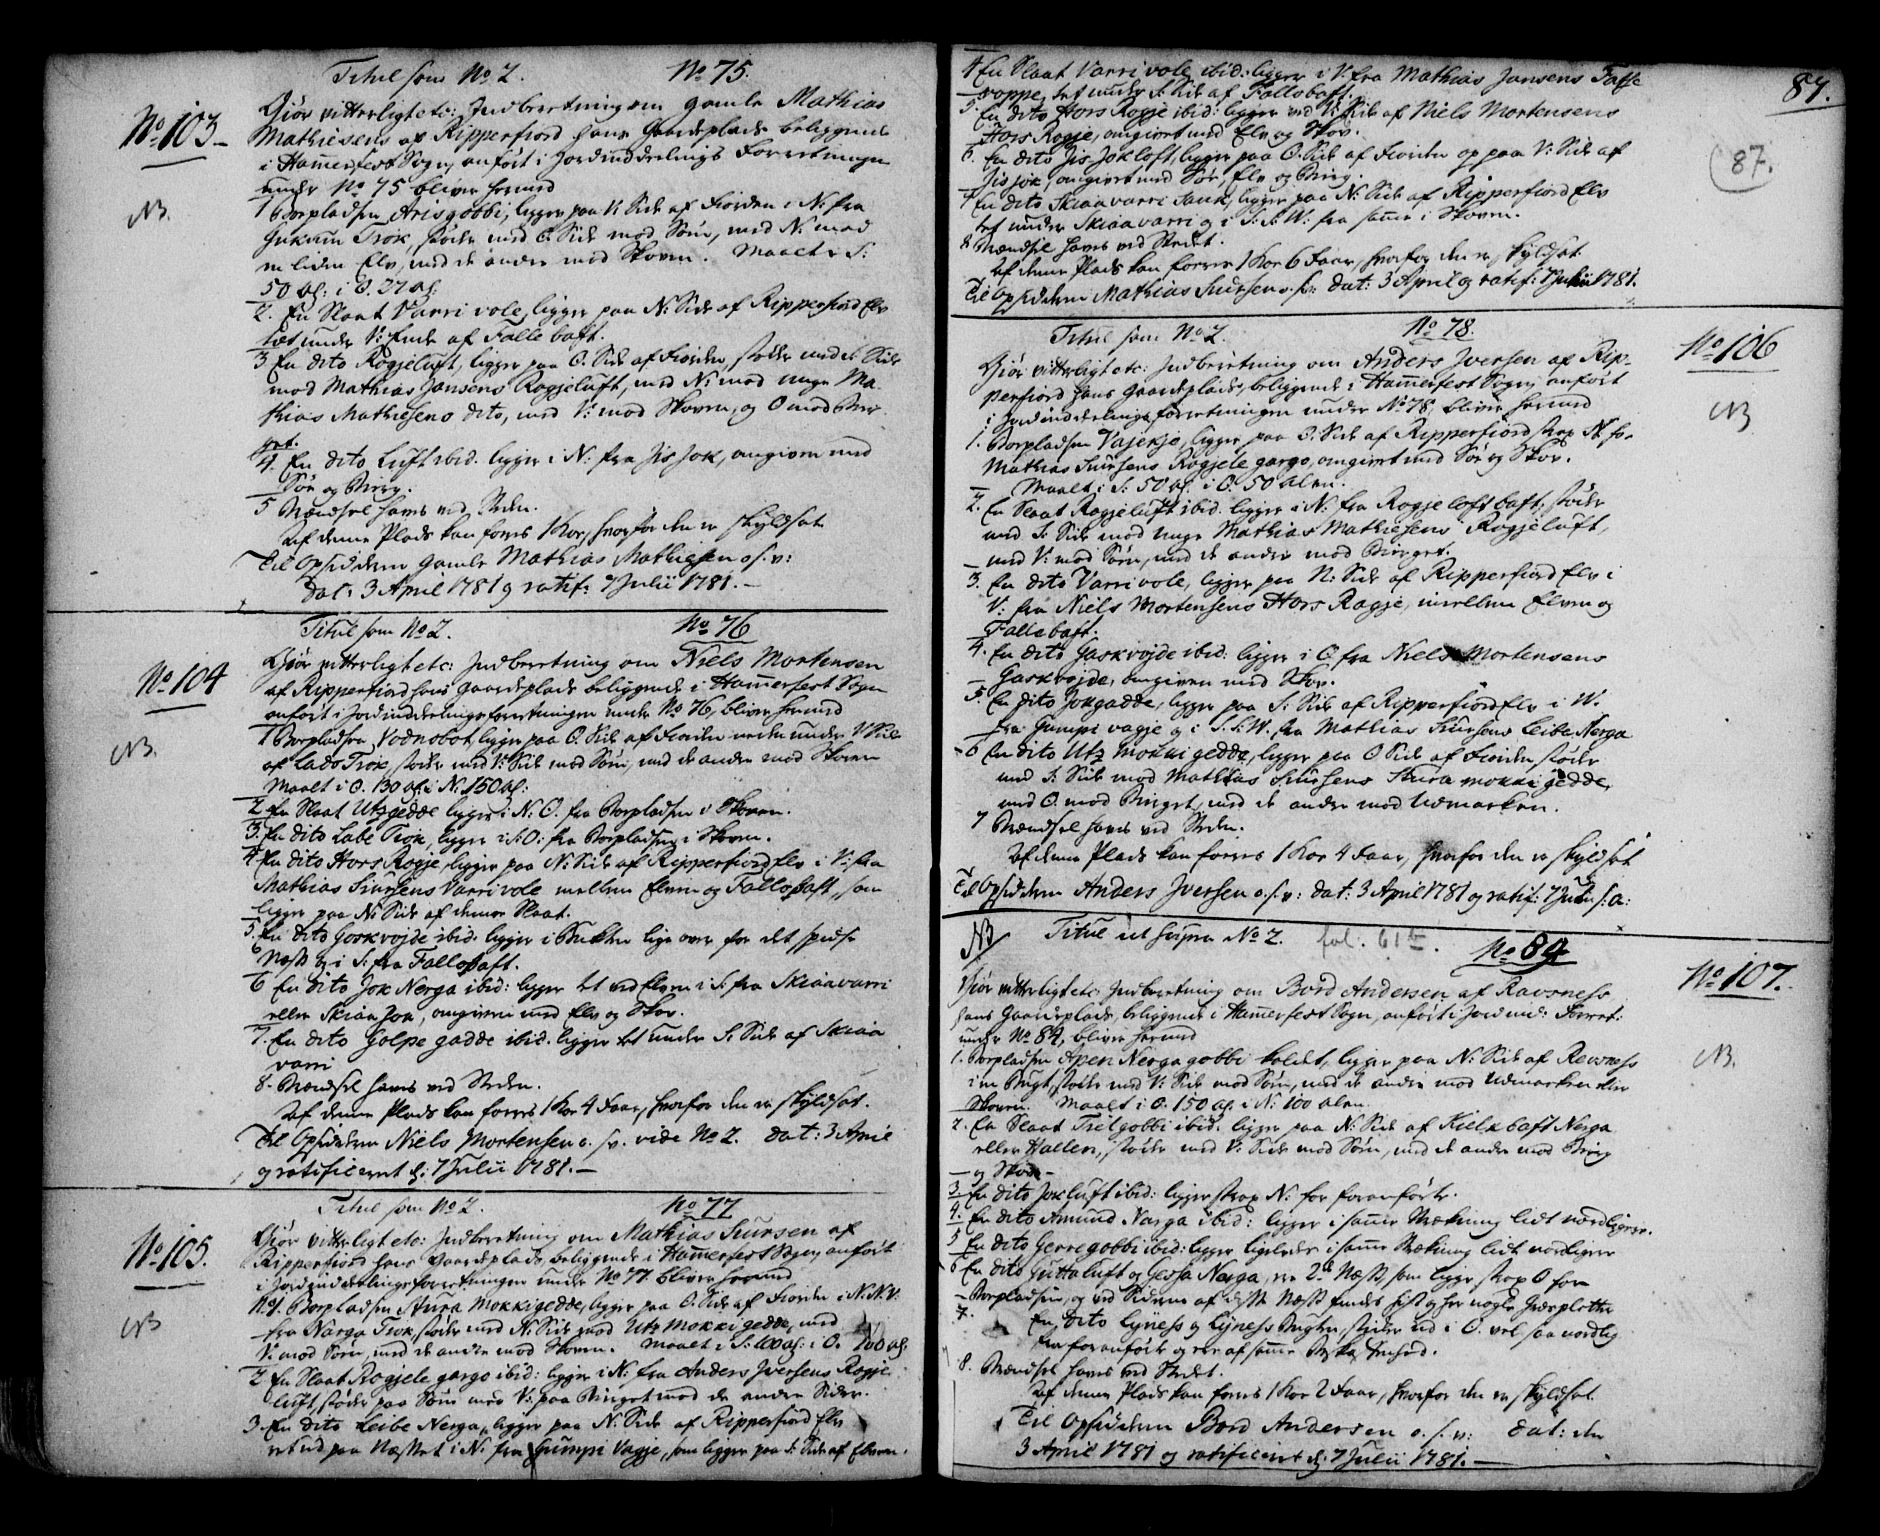 Titul som No 2. No 75.
No 103
NB.
Giør vitterligt etc: Indberetning om gamle Mathias
Mathiesens af Ripperfiord hans Gaardeplads beliggende
i Hamerfest Sogn, anført i Jordinddelings Forretningen
under No 75 bliver herved
1 Boepladsen Arisgobbi, ligger paa V: Side af Fiorden i N: fra
Trok, støder med O. Side mod Søen, med N: mod
en liden Elv, med de andre mod Skoven. Maalt i S:
50 al: i O. 27 al:
2. En Slaat Varri vole, ligger paa N: Side af Ripperfiord Elv
tæt under V: Ende af Falle baft.
3 En dito Rogjeluft, ligger paa O. Side af Fiorden, støder med S: Side
mod Mathias Jansens Rogjeluft, med N: mod unge Ma-
thias Mathiesens dito, med V: mod Skoven, og O mod Ber-
get.
4. En dito Luft ibid. ligger i N: fra Jis Jok, omgiven med
Søe og Berg.
5 Brændsel haves ved Stedet.
Af denne Plads kan foeres 1 Koe, hvorfor den er skyldsat
Til Opsidderen gamle Mathias Mathiesen o. s. v:
Dat: 3 April 1781 og ratif: 7 Julii 1781.
Titul som No 2. No 76
No 104
NB.
Giør vitterligt etc: Indberetning om Niels Mortensen
af Ripperfiord hans Gaardeplads beliggende i Hamerfest Sogn
anført i Jordinddelingsforretningen under No 76, bliver herved
1 Boepladsen Vodnobot, ligger paa O. Side af Fiorden neden under V Side
af Labo Trok, støder med V: Side mod Søen, med de andre mod Skoven
Maalt i O. 130 al: i N: 150 al:
2 En Slaat Utzgedde ligger i N: O. fra Boepladsen i Skoven.
3. En dito Labe Trok, ligger i S: O: fra Boepladsen i Skoven.
4 En dito Hors Rogje, ligger paa N: Side af Ripperfiord Elv i V: fra
Mathias Siursens Varrivole mellem Elven og Fallobaft, som
ligger paa N: Side af denne Slaat.
5. En dito Goskvojde ibid. ligger i Bugten lige over for det spidse
Næss og i S: fra Fallobaft.
6 En dito Jok Nerga ibid: ligger tæt ved Elven i S: fra Skiaavarri
eller Skiaa Jok, omgiven med Elv og Skov.
7. En dito Golpe gadde ibid. ligger tæt under S. Side af Skiaa
varri
8. Brændsel haves ved Stedet.
Af denne Plads kan foeres 1 Koe 4 Faar, hvorfor den er skyldsat.
Til Opsidderen Niels Mortensen o. s. v. vide No 2. Dat: 3 April
og ratificeret d: 7 Julii 1781.
Titul som No 2. No 77
No 105.
NB
Giør vitterligt etc: Indberetning om Mathias Siursen af
Ripperfiord hans Gaardeplads, beliggende i Hamerfest Sogn, anført
i Jordinddelingsforretningen under No 77. bliver herved
1. Boepladsen Aura Mokkigedde, ligger paa O. Side af Fiorden i N: N: V:
fra Narga Trok, støder med N: Side mod Utz Mokki gedde, med
V: mod Søen, med de andre mod Skoven. Maalt i S: 100 al: i O. 200 al:
2 En Slaat Rogjele gargo ibid: ligger i N: fra Anders Iversens Rogje
luft, støder paa Søen med V: paa Berget med de andre Sider.
3. En dito Leibe Nerga, ligger paa N: Side af Ripperfiord Elv
ret ud paa Næsset i N: fra Gumpi Vagje, som ligger paa S: Side af Elven.
87.
(87.
4 En Slaat Varri vole ibid: ligger i V: fra Mathias Jansens
roppe, tæt under S: Side af Fallobaft.
5. En dito Hors Rogje ibid: ligger ved V: Side af Niels Mortensens
Hors Rogje, omgivet med Elv og Skov.
6. En dito Jis Jok loft, ligger paa O. Side af Fiorden og paa V: Side af
Jis jok, omgivet med Søe, Elv og Berg.
7 En dito Skiaavarri Jauk, ligger paa N: Side af Ripperfiord Elv
tæt under Skiaavarri og i S: S: W: fra samme i Skoven.
8 Brændsel haves ved Stedet.
Af denne Plads kan foeres 1 Koe 6 Faar, hvorfor den er skyldsat
Til Opsidderen Mathias Siursen o. s. v: Dat: 3 April og ratif: 7 Julii 1781.
Titul som No 2. No 78.
No 106
NB
Giør vitterligt etc: Indberetning om Anders Iversen af Rip-
perfiord hans Gaardeplads, beliggende i Hamerfest Sogn, anført
i Jordinddelingsforretningen under No 78, bliver herved
1. Boepladsen Vajekje, ligger paa O. Side af Ripperfiord strax N: for
Mathias Siursens Rogjele gargo, omgivet med Søe og Skov.
Maalt i S: 50 al: i O. 50 Alen.
2. En Slaat Rogjeluft ibid. ligger i N: fra Rogje loft baft, støder
med S: Side mod unge Mathias Mathiesens Rogjeluft,
med V: mod Søen, med de andre mod Berget.
3. En dito Varrivole, ligger paa N: Side af Ripperfiord Elv i
V: fra Niels Mortensens Hors Rogje, imellem Elven og
Fallebaft.
4. En dito Gaskvojde ibid: ligger i O. fra Niels Mortensens
Gaskvojde, omgiven med Skov.
5. En dito Jokgadde, ligger paa S: Side af Ripperfiord Elv i W.
fra Gumpi vagje og i S. S: W. fra Mathias Siursens Leibe Nerga
6 En dito Utz Mokki gedde, ligger paa O Side af Fiorden støder
med S: Side mod Mathias Siursens Stura mokki gedde,
med O. mod Berget, med de andre mod Udmarken.
7 Brændsel haves ved Stedet.
Af denne Plads kan foeres 1 Koe 4 Faar, hvorfor den er skyldsat
Til Opsidderen Anders Iversen o. s. v: dat: 3 April 1781 og ratif: 7 Julii s: a:
NB Titul ut supra No 2. fol: 61 b. No 84
No 107.
NB.
Giør vitterligt etc: Indberetning om Bord Andersen af Ravsness
hans Gaardeplads, beliggende i Hamerfest Sogn, anført i Jordind: Forret:
under No 84, bliver herved
1. Boepladsen Apen Nergagobbi kaldet, ligger paa N: Side af Revsness
i en Bugt, støder med V: Side mod Søen, med de andre mod Udmarken eller
Skoven. Maalt i O. 150 al: i N: 100 Alen.
2. En Slaat Trelgobbi ibid. ligger paa N: Side af Kielk baft Nerga
eller Hallen, støder med V: Side mod Søen, med de andre mod Berg
og Skov.
3 En dito Jokluft ibid: ligger strax N: for foranførte.
4. En dito Amund Narga ibid: ligger i samme Strækning lidt nordligere.
5 En dito Gerregobbi ibid: ligger ligeledes i samme Strækning lidt nordligere
6 En dito Guttaluft og Gessa Nerga, ere 2de Næss, som ligge strax O for
Boepladsen, og ved Siderne af disse Næss findes hist og her nogle Græspletter
7. En dito Lyness og Lyness Bugten, støder ud i O. vel saa nordlig
som foranførte og ere af samme
8. Brændsel haves ved Stedet.
Af denne Plads kan foeres 1 Koe 2 Faar, hvorfor den er skyldsat.
Til Opsidderen Bord Andersen o. s. v: Dat: den
3 April 1781 og ratificeret d: 7 Julii 1781.